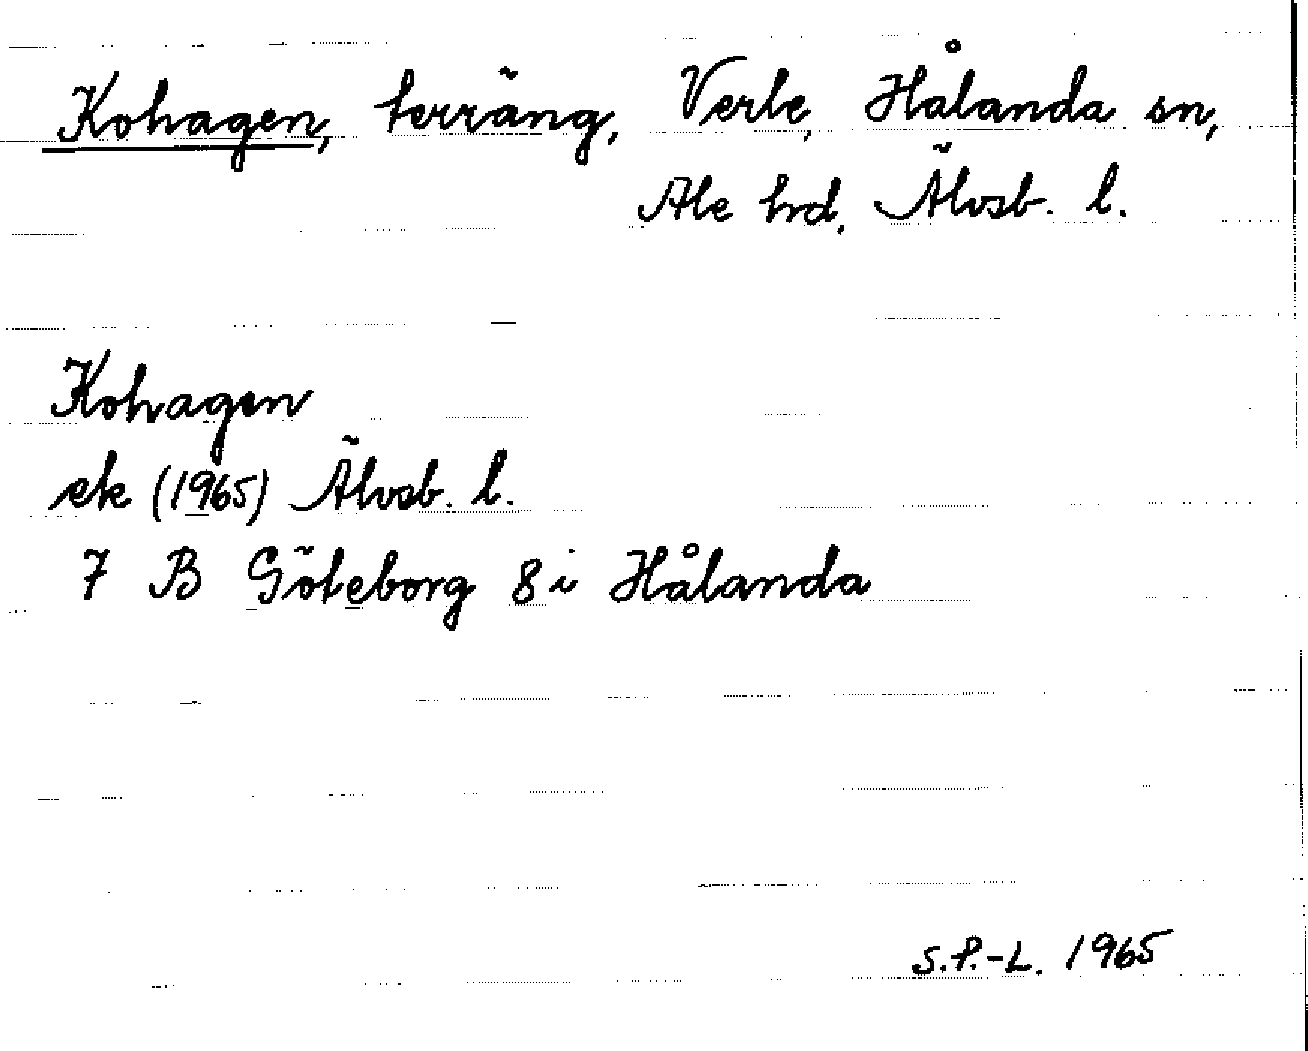 Kohagen, terräng, Verle, Hålanda sn,
Ale hrd, Älvsb. l.
Kohagen
ek (1965) Älvsb. l.
7 B Göteborg 8 i Hålanda
S.P.-L. 1965